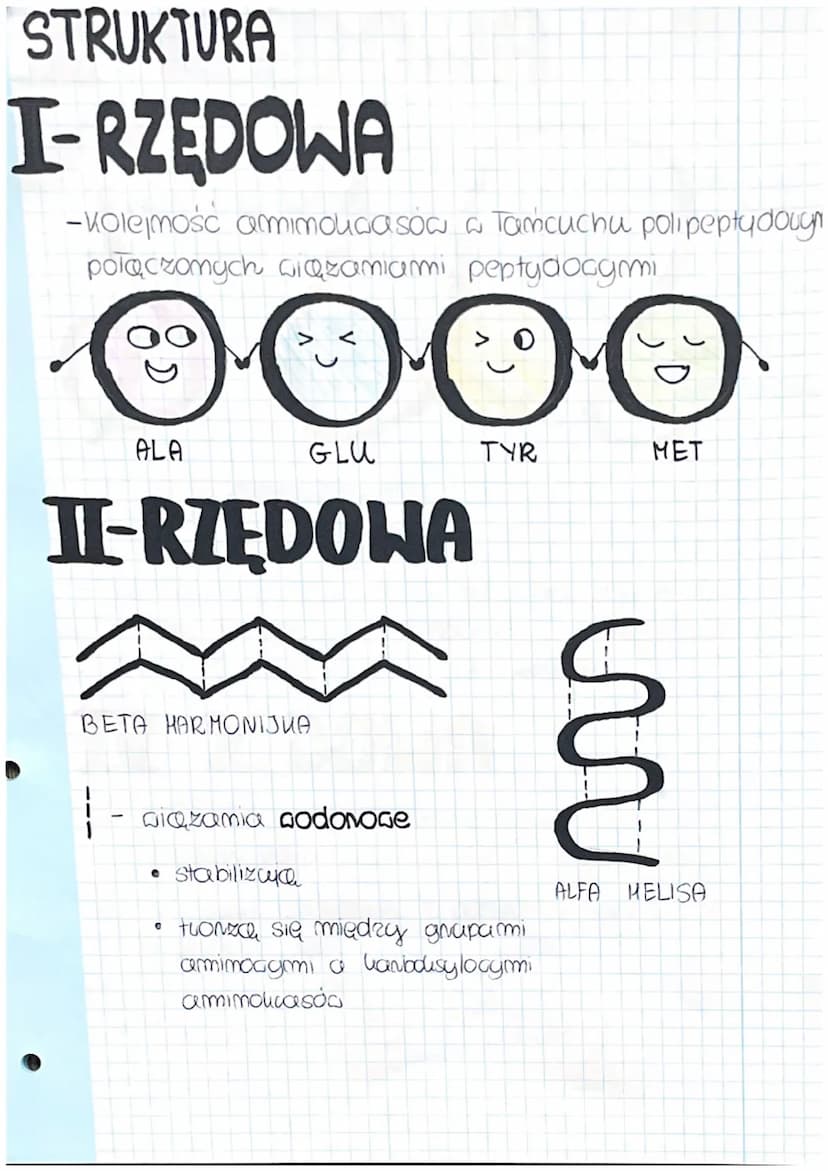 STRUKTURA
I-RZĘDOWA
-kolejność aminokwasów w łańcuchu polipeptydowym
połączonych wiązaniami peptydowymi
ALA GLU TYR MET
II-RZĘDOWA
BETA HARMONIJKA
- wiązania wodorowe
• stabilizują
ALFA HELISA
• tworzą się między grupami
aminowymi a karboksylowymi
aminokwasów